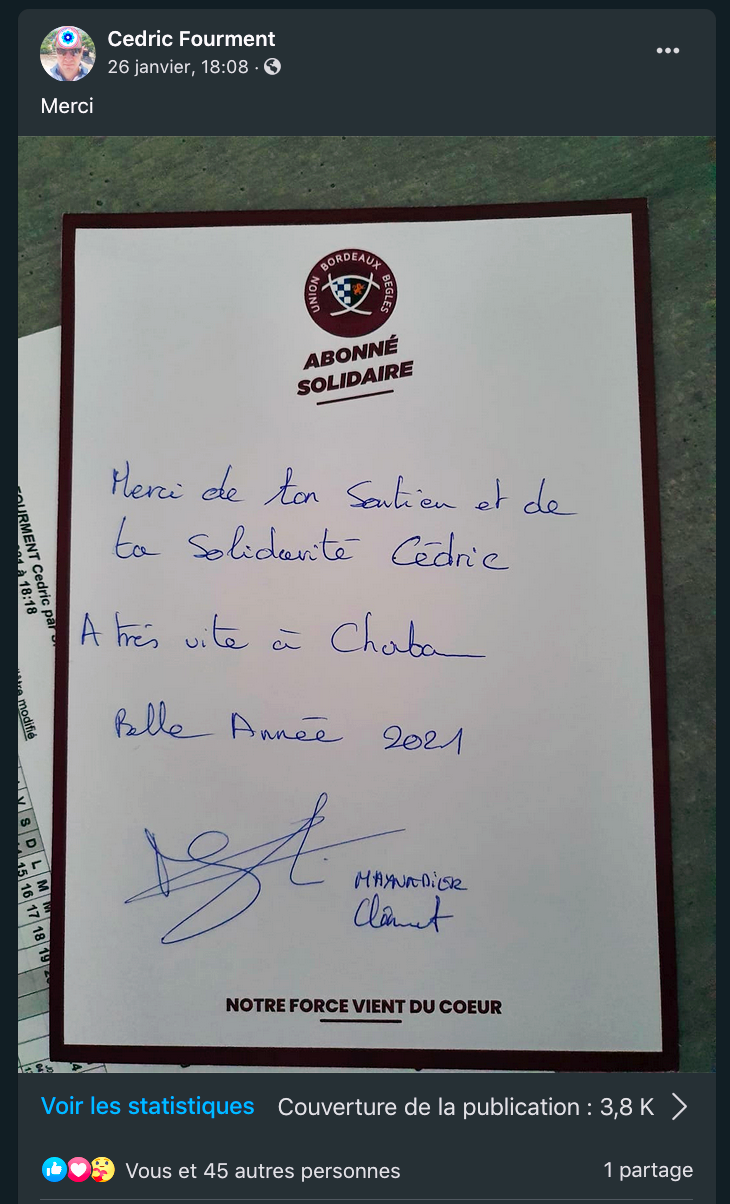 Cedric Fourment
26 janvier, 18:08 ·
Merci
UNION BORDEAUX BEGLES
ABONNÉ
SOLIDAIRE
Merci de ton Soutien et de
ta Solidarité Cédric
A très vite à Chaban
Belle Année 2021
MAYNADIER
Clément
NOTRE FORCE VIENT DU COEUR
FOURMENT Cedric par
à 18:18
modifié
V S D L M M
15 16 17 18 19
Voir les statistiques
Couverture de la publication : 3,8 K
Vous et 45 autres personnes
1 partage